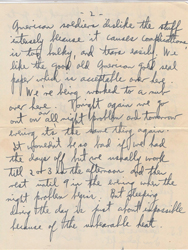 - 2 -
American soldiers dislike the stuff
intensely because it causes complications,
is too bulky, and tears easily. We
like the good old American gold seal
paper which is acceptable over here.
We're being worked to a nub
over here. Tonight again we go
out on all night problem and tomorrow
evening do the same thing again.
It wouldn't be so bad if we had
the days off but we usually work
till 2 or 3 in the afternoon and then
rest until 9 in the evening when the
night problem begins. But sleeping
during the day is just about impossible
because of the unbearable heat.